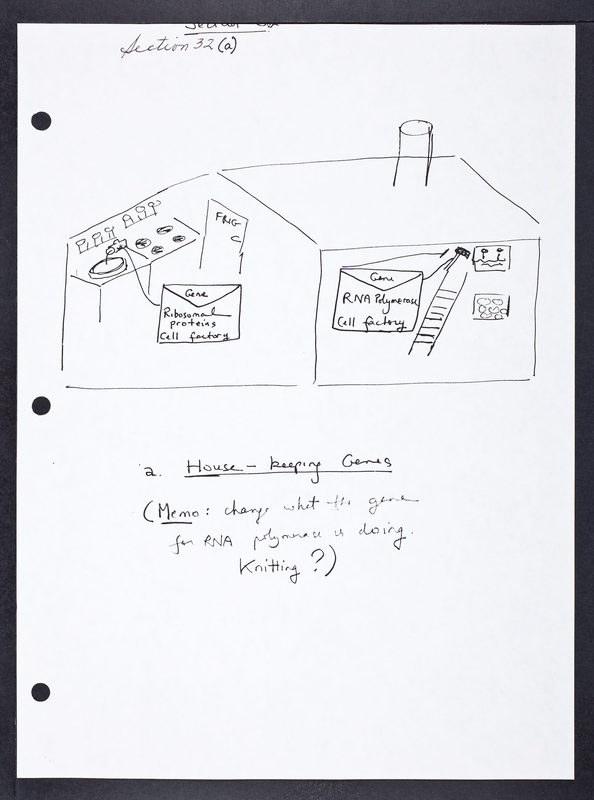 Section 32 (a)
FRIG
Gene
Ribosomal
proteins
Cell factory
Gene
RNA Polymerase
Cell factory
a. House-keeping Genes
(Memo: change what the gene
for RNA polymerase is doing.
Knitting?)